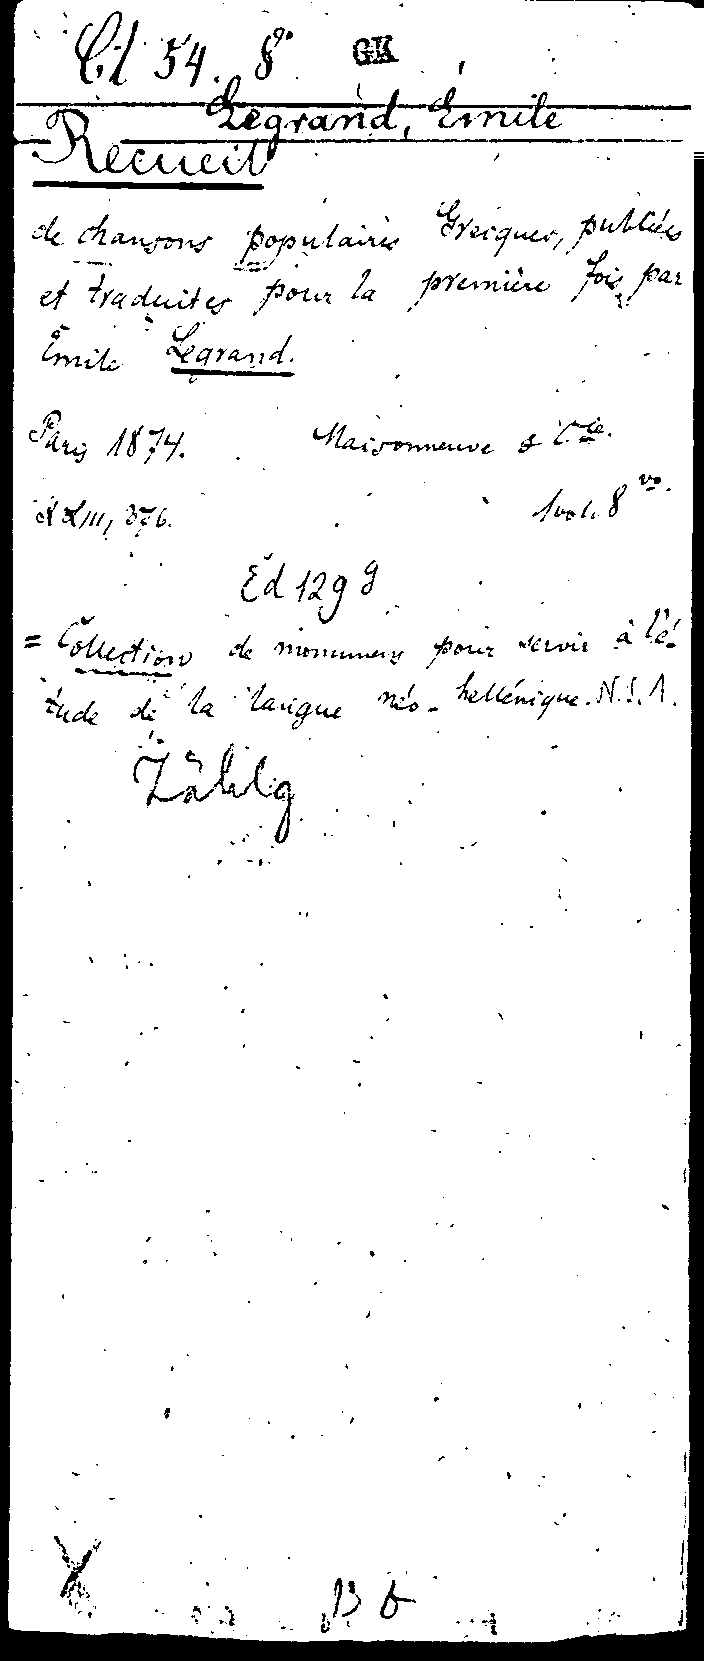 Ct 54. 8° GK
Legrand, Émile
Recueil
de chansons populaires Grecques, publiées
et traduites pour la première fois par
Émile Legrand.
Paris 1874. Maisonneuve & Cie.
XLIII, 376. 1 vol. 8vo.
Ed 129 g
= Collection de monumens pour servir à l'é-
tude de la langue néo-hellénique. N.S. 1.